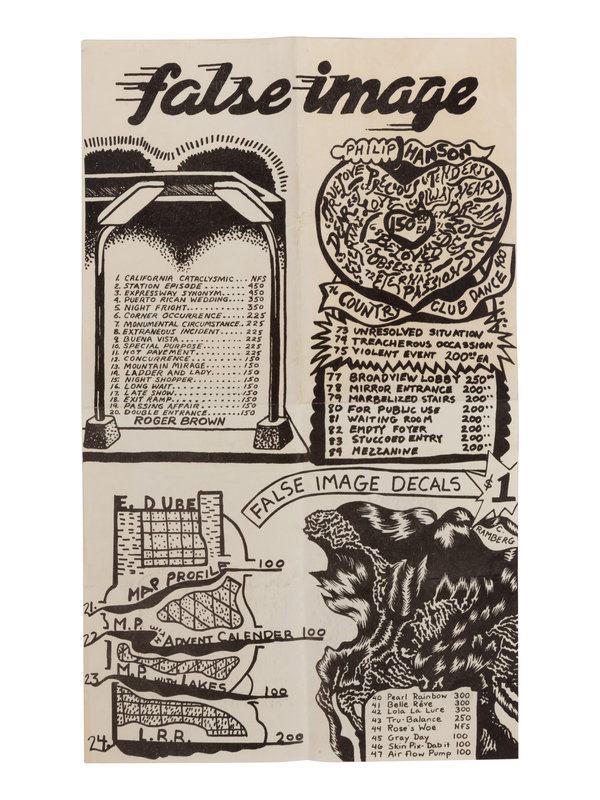 false image
1. CALIFORNIA CATACLYSMIC... NFS
2. STATION EPISODE......... 450
3. EXPRESSWAY SYNONYM.... 450
4. PUERTO RICAN WEDDING... 350
5. NIGHT FRIGHT............ 350
6. CORNER OCCURRENCE...... 225
7. MONUMENTAL CIRCUMSTANCE. 225
8. EXTRANEOUS INCIDENT..... 225
9. BUENA VISTA............ 225
10. SPECIAL PURPOSE......... 225
11. HOT PAVEMENT........... 225
12. CONCURRENCE............ 150
13. MOUNTAIN MIRAGE........ 150
14. LADDER AND LADY........ 150
15. NIGHT SHOPPER.......... 150
16. LONG WAIT.............. 150
17. LATE SHOW.............. 150
18. EXIT RAMP.............. 150
19. PASSING AFFAIR......... 150
20. DOUBLE ENTRANCE........ 150
ROGER BROWN
PHILIP HANSON
TRUE LOVE PRECIOUS TENDERLY
ALWAYS
YEARN
DREAM
150
BELOVED
OBSESSED
ETERNAL
PASSION
THE COUNTRY CLUB DANCE 400
73 UNRESOLVED SITUATION
74 TREACHEROUS OCCASSION
75 VIOLENT EVENT 200.00 EA
77 BROADVIEW LOBBY 250
78 MIRROR ENTRANCE 200
79 MARBELIZED STAIRS 200
80 FOR PUBLIC USE 200
81 WAITING ROOM 200
82 EMPTY FOYER 200
83 STUCCOED ENTRY 200
84 MEZZANINE 200
FALSE IMAGE DECALS $1
E. DUBE
MAP PROFILE 100
21.
22 M.P. WITH ADVENT CALENDER 100
23 M.P. WITH LAKES 100
24. L.R.R. 200
C. RAMBERG
40 Pearl Rainbow 300
41 Belle Rêve 300
42 Lola La Lure 300
43 Tru-Balance 250
44 Rose's Woe NFS
45 Gray Day 100
46 Skin Pix-Dabit 100
47 Air flow Pump 100